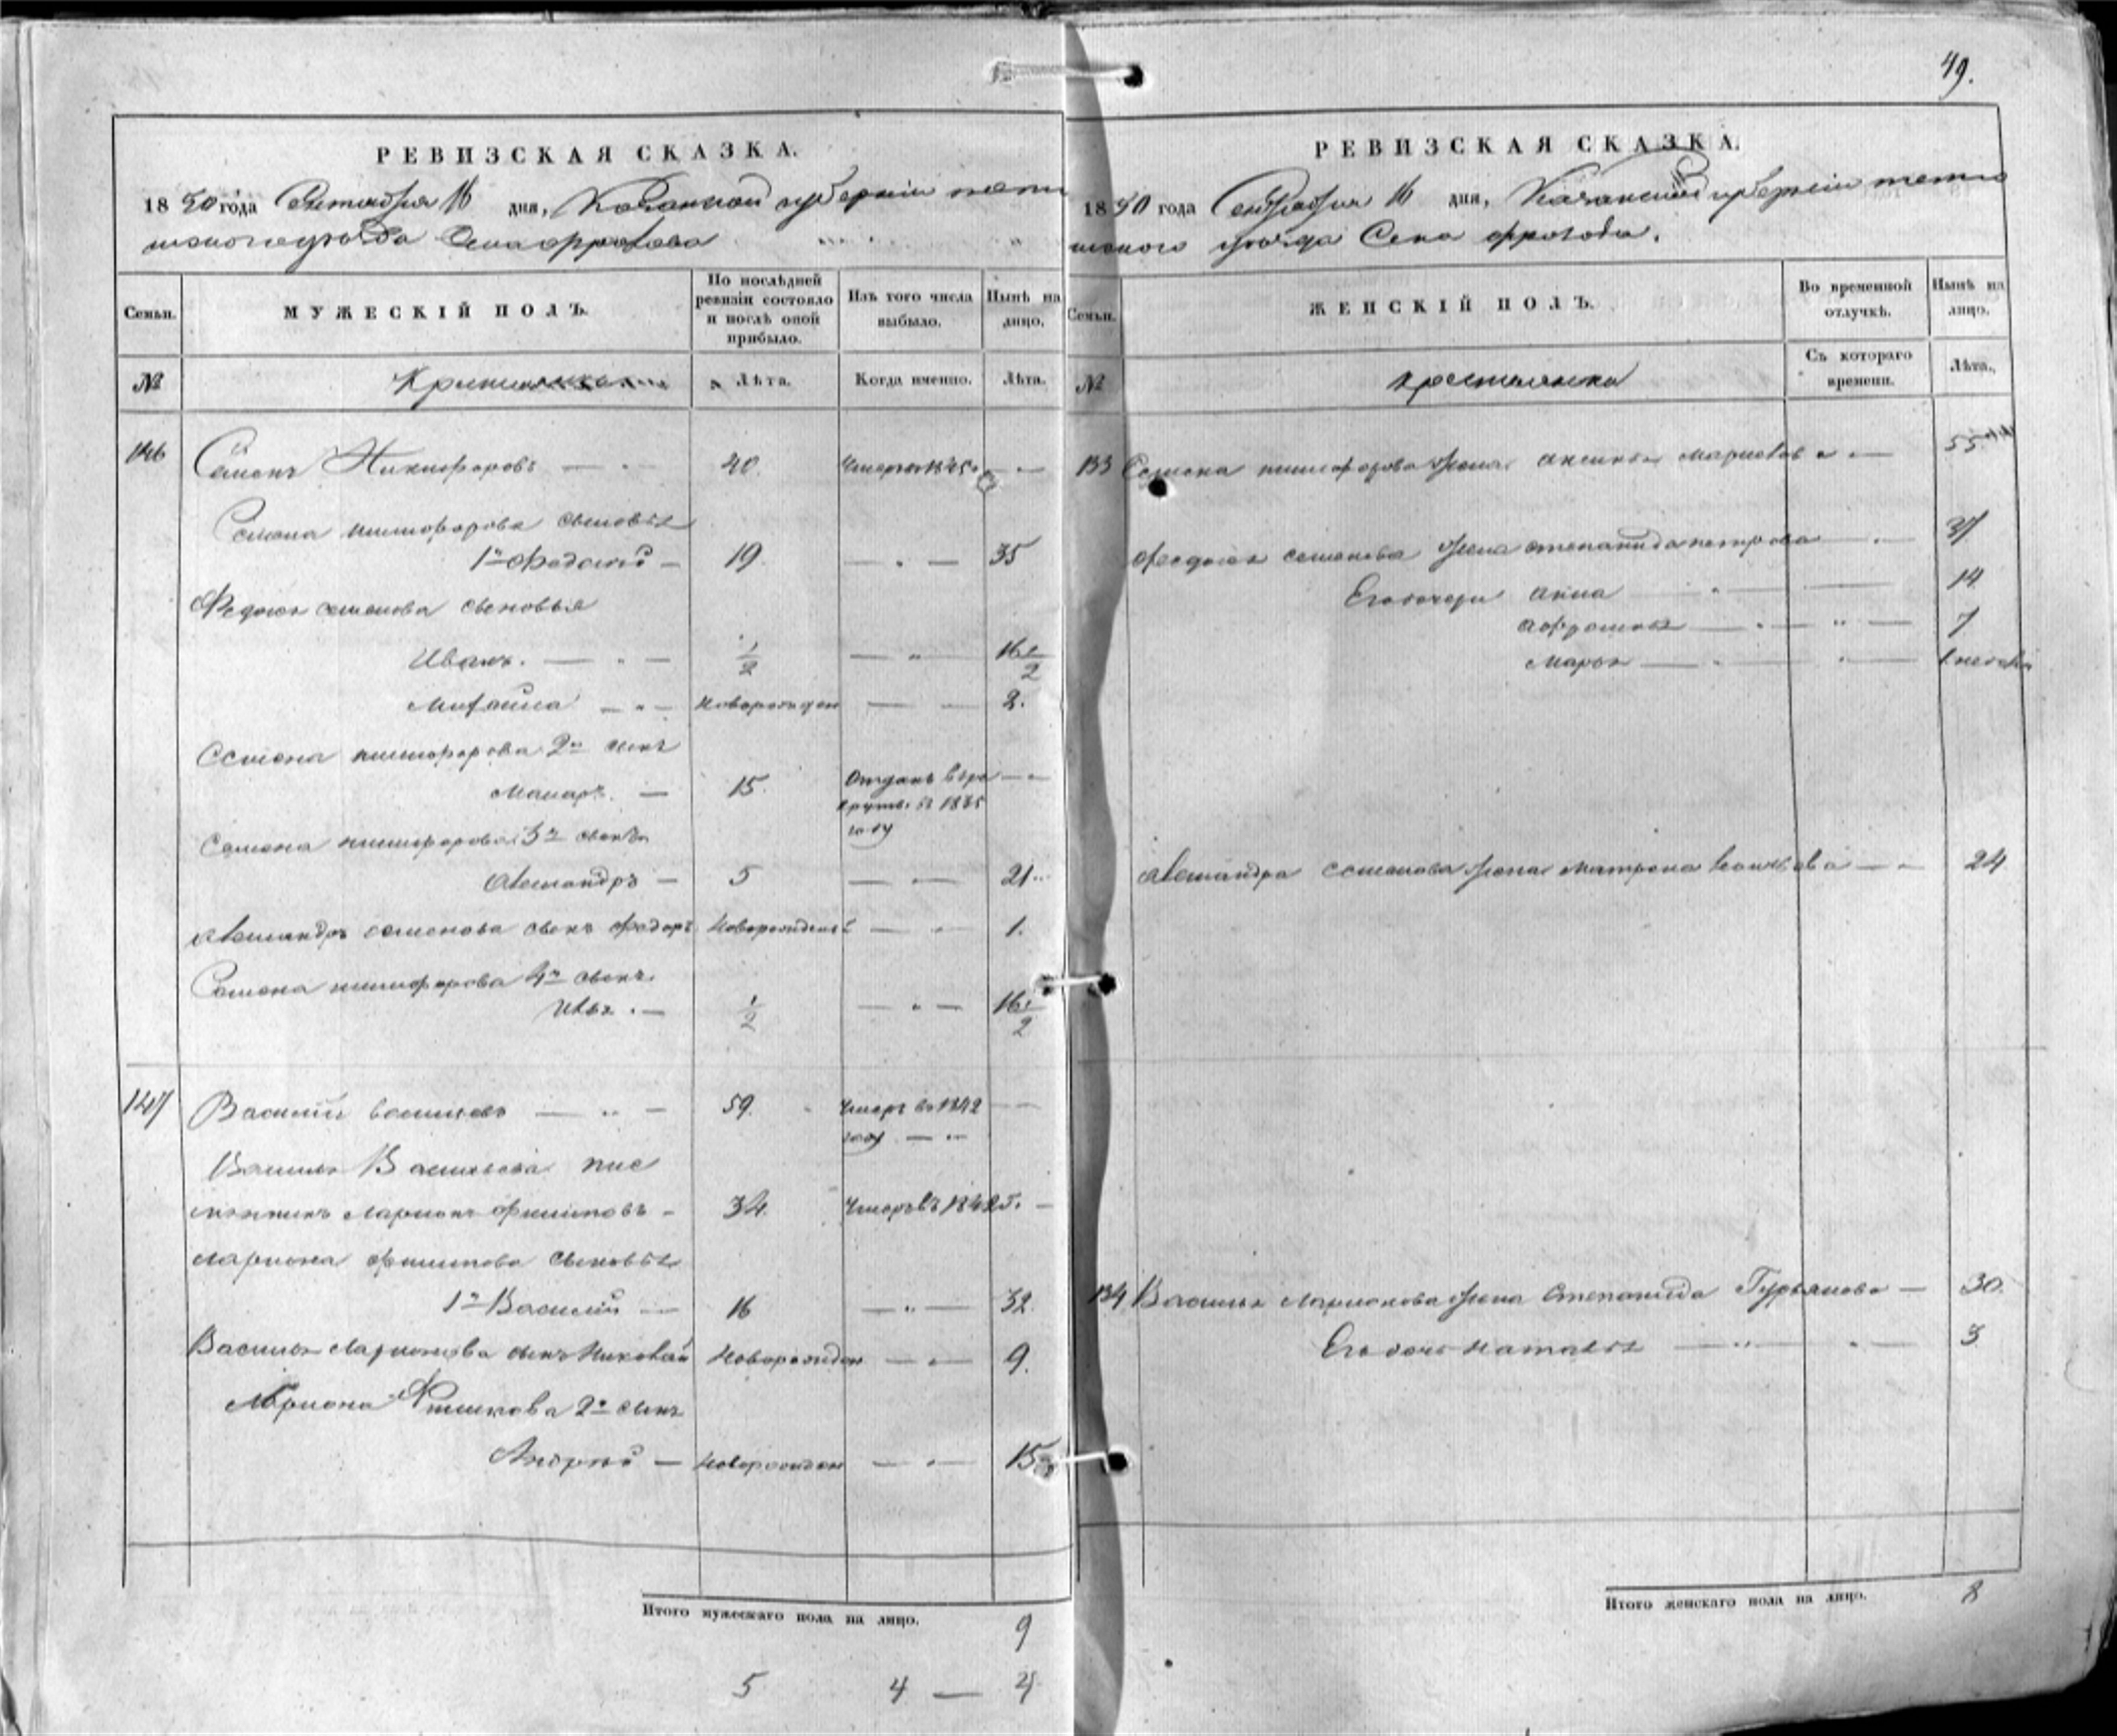 49.
РЕВИЗСКАЯ СКАЗКА.
1850 года Сентября 16 дня, Казанской губернии тетю
шскаго уезда Села фролова
Семьи.
МУЖЕСКІЙ ПОЛЪ.
По послѣдней ревизіи состояло и послѣ оной прибыло.
Изъ того числа выбыло.
Нынѣ на лицо.
№
Лѣта.
Когда именно.
Лѣта.
146 Семенъ Никифоровъ — 40. Умеръ 1845 —
Семена никифорова сыновья
1й Федосѣй — 19. — 35
Федосея семенова сыновья
Иванъ. — 1/2 — 16 1/2
Михайла — Новорожден — 2.
Семена никифорова 2й сынъ
Макаръ. — 15. Отданъ вре
круты. въ 1835
году
Семена никифорова 3й сынъ
Александръ — 5 — 21
Александра семенова сынъ Федоръ Новорожденъ — 1.
Семена никифорова 4й сынъ.
1/2 — 16 1/2
147 Василий васильевъ — 59. Умеръ въ 1842
году —
Василья Васильева пле
мянникъ Ларионъ Филиповъ — 34. Умеръ въ 184
Лариона филипова сыновья
1й Василий — 16 — 32.
Василья Ларионова сынъ Николай Новорожден — 9.
Лариона Филипова 2й сынъ
Андрей — Новорожден — 15
Итого мужескаго пола на лицо. 9
5 4 — 4
РЕВИЗСКАЯ СКАЗКА.
1850 года Сентября 16 дня, Казанской губернии тетю
шского уезда Села фролова.
Семьи.
ЖЕНСКІЙ ПОЛЪ.
Во временной отлучкѣ.
Нынѣ на лицо.
№
крестьянка
Съ котораго времени.
Лѣта.
133 Семена никифорова жена аксинья маркова — 55
Федосея семенова жена степанида петрова — 37
Его дочери анна — 14
Афросинья — 7
Марья — 1 недели
Александра семенова жена матрона — 24
134 Василья Ларионова жена Степанида Гурьянова — 30.
Его дочь наталья — 3
Итого женскаго пола на лицо. 8